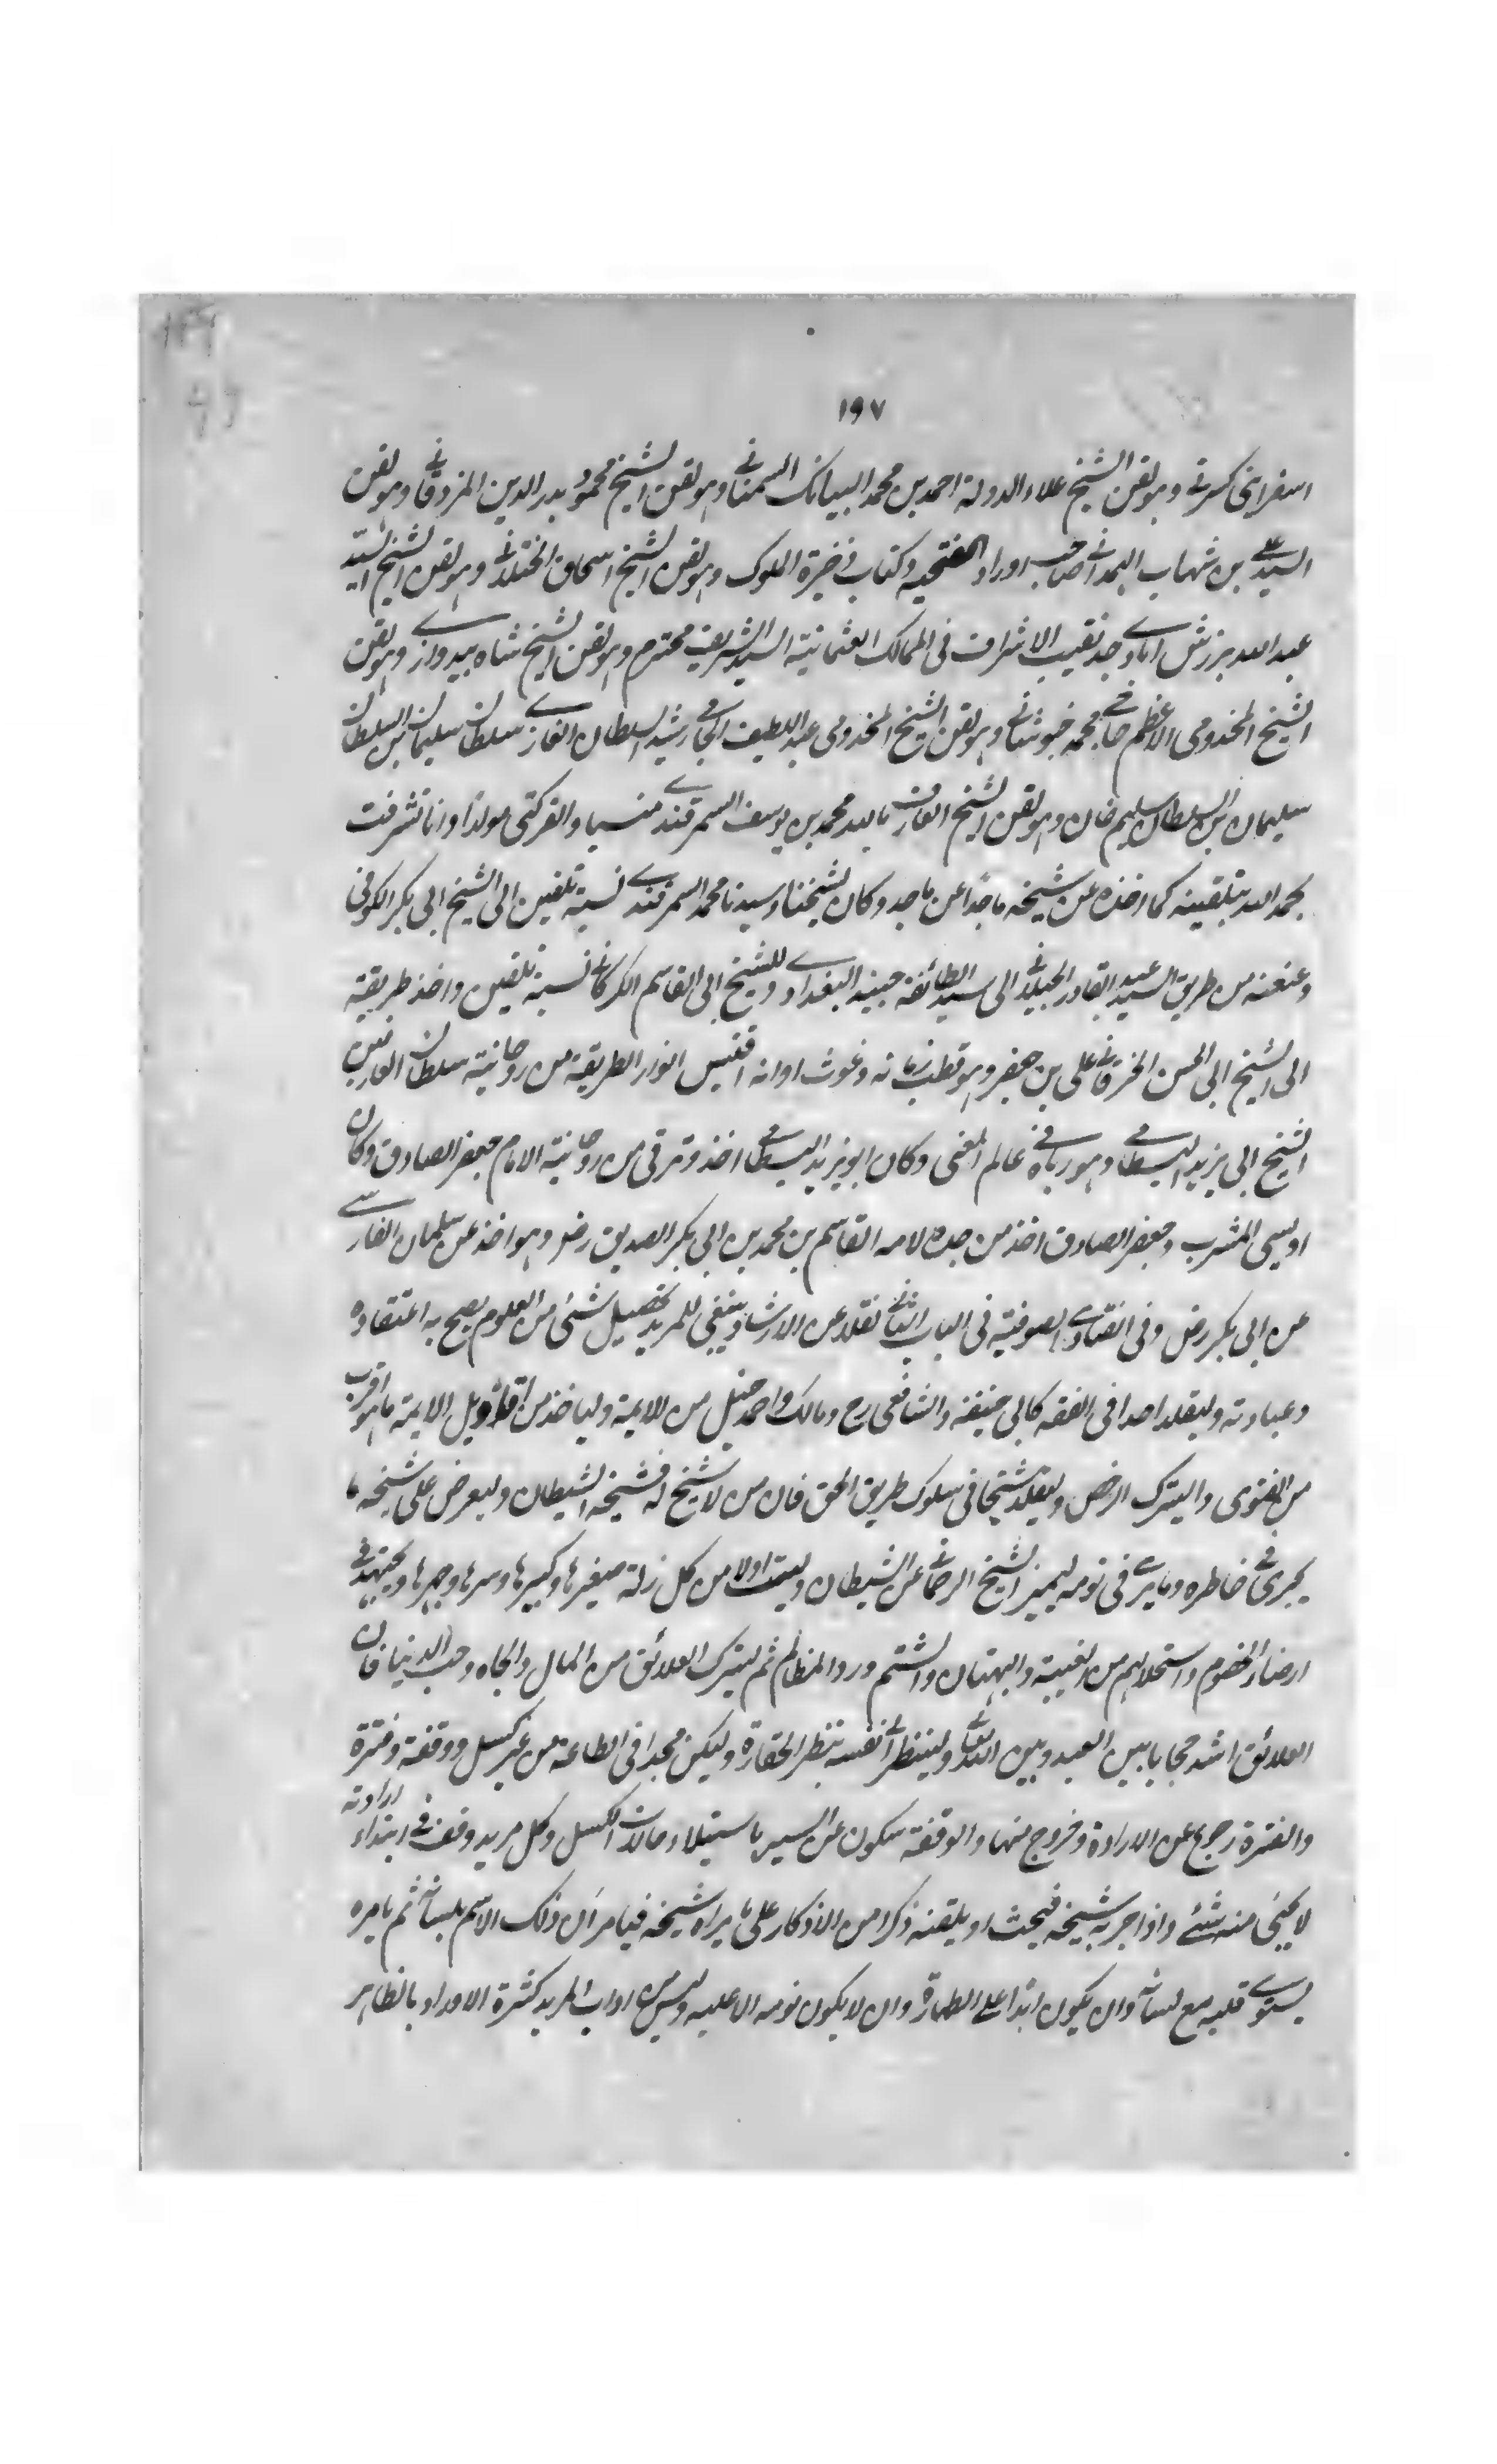 ١٩٧
اسفراينى كسرتى وهو لقن الشيخ علاء الدولة احمد بن محمد البيانانك السمنانى وهو لقن الشيخ محمود بدر الدين المزدقانى وهو لقن
السيد على بن شهاب الهمدانى صاحب اوراد الفتحيه وكتاب ذخيرة الملوك وهو لقن الشيخ اسحاق الختلانى وهو لقن الشيخ السيد
عبد الله برزش ابادى جد نقيب الاشراف فى الممالك العثمانية السيد الشريف محترم وهو لقن الشيخ شاه بيدوازى وهو لقن
الشيخ المخدومى الاعظم حاجى محمد خبوشانى وهو لقن الشيخ المخدومى عبد اللطيف الجامى رشيد السلطان الغازى سلطان سليمان بن السلطان
سليمان بن السلطان سليم خان وهو لقن الشيخ العارف بالله محمد بن يوسف السمرقندى منسبا والفركتى مولدا وانا تشرفت
بحمد الله بتلقينه كما اخذه عن شيخه ماجدا عن ماجد وكان لشيخنا وسيدنا محمد السمرقندى نسبة تلقين الى الشيخ ابى بكر الكوفى
وعنعنه من طريق السيد عبد القادر الجيلانى الى سيد الطائفة جنيد البغدادى وللشيخ ابى القاسم الكركانى نسبة تلقين واخذ طريقة
الى الشيخ ابى الحسن الخرقانى على بن جعفر وهو قطب زمانه وغوث اوانه اقتبس انوار الطريقة من روحانية سلطان العارفين
الشيخ ابى يزيد البسطامى وهو رباه فى عالم المعنى وكان ابو يزيد البسطامى اخذ وترقى من روحانية الامام جعفر الصادق وكان
اويسى المشرب وجعفر الصادق اخذ من جده لامه القاسم بن محمد بن ابى بكر الصديق رض وهو اخذ عن سلمان الفارسى
عن ابى بكر رض وفى الفتاوى الصوفية فى الباب الثانى نقلا عن الارشاد ينبغى للمريد تحصيل شئ من العلوم يصح به اعتقاده
وعبادته وليقلد احدا فى الفقه كابى حنيفة والشافعى رح ومالك واحمد حنبل من الايمة ولياخذ من اقاويل الايمة ما هو اقرب
من الفتوى وليترك الرخص وليقلد شيخا فى سلوك طريق الحق فان من لا شيخ له فشيخه الشيطان وليعرض على شيخه ما
يجرى فى خاطره وما يرى فى نومه ليميز الشيخ الرحمانى عن الشيطان وليتب اولا من كل زلة صغيرها وكبيرها وسرها وجهرها ويجتهد فى
ارضاء الخصوم واستحلالهم من الغيبة والبهتان والشتم ورد المظالم ثم ليترك العلائق من المال والجاه وحب الدنيا فان
العلائق اشد حجابا بين العبد وبين الله تعالى ولينظر الى نفسه بنظر الحقارة وليكن مجدا فى الطاعة من غير كسل ووقفة وفترة
والفترة رجوع عن الارادة وخروج منها والوقفة سكون عن السير باستيلاء حالات الكسل وكل مريد وقف فى ابتداء ارادته
لا يجئ منه شئ واذا جربه شيخه فيجب ان يلقنه ذكرا من الاذكار على ما يراه شيخه فيامر ان ذلك الاسم بلسانه ثم يامره
يستوى قلبه مع لسانه وان يكون ابدا على الطهارة وان لا يكون نومه الا غلبة وليس من اداب المريد كثرة الاوراد بالظاهر